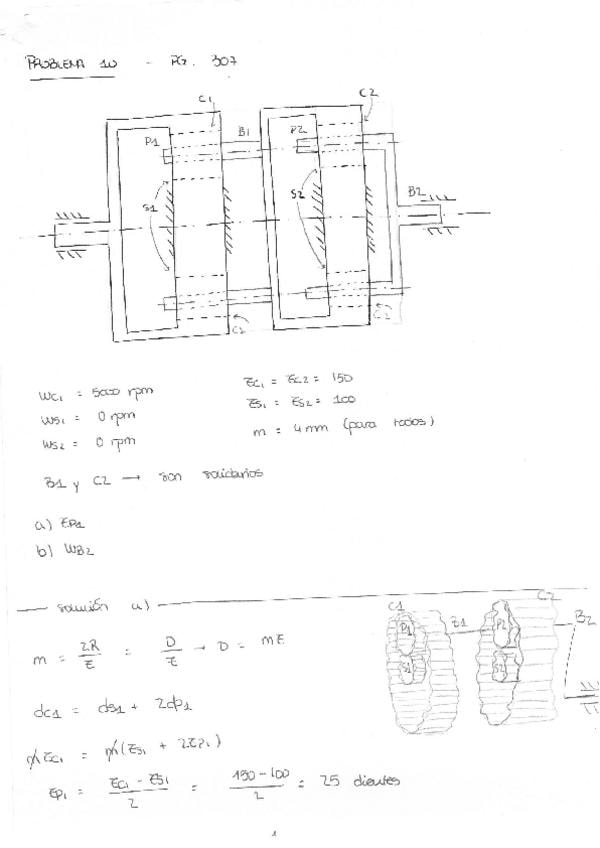 PROBLEMA 10 - PG. 307
C1
C2
P1
B1
P2
B2
S1
S2
C1
C2
ωC1 = 5000 rpm
ωS1 = 0 rpm
ωS2 = 0 rpm
ZC1 = ZC2 = 150
ZS1 = ZS2 = 100
m = 4mm (para todos)
B1 y C2 → son solidarios
a) ZP1
b) ωB2
solución a)
C1
P1
S1
B1
P2
S2
C2
B2
m = 2R/Z = D/Z → D = mZ
dC1 = dS1 + 2dP1
m ZC1 = m (ZS1 + 2ZP1)
ZP1 = (ZC1 - ZS1)/2 = (150-100)/2 = 25 dientes
1